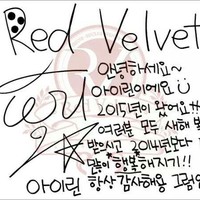 Red Velvet
안녕하세요~
아이린이에요
2015년이 왔어요!!
여러분 모두 새해 복
받으시고 2014년보다
만이 행복해지기!!
아이린 항상 감사해용 그럼안